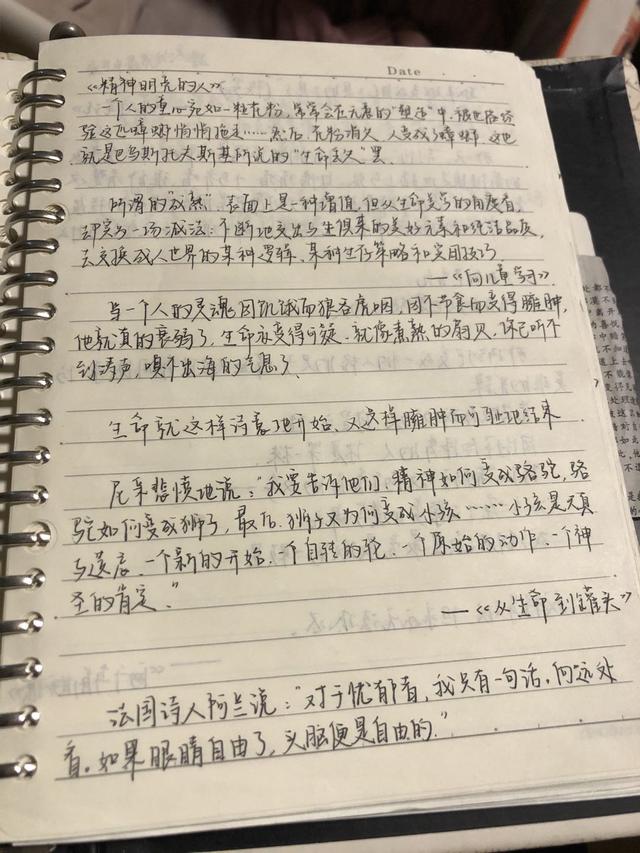 Date
《精神明亮的人》
一个人的童心宛如一粒花粉，常常会在无意的"塑造"中，被世俗经
验这匹蟑螂悄悄拖走……然后，花粉消失，人变成了蟑螂．这也
就是巴乌斯托夫斯基所说的"生命丢失"罢．
所谓的"成熟"，表面上是一种增值，但从生命美学的角度看，
却实为一场减法：不断地交出与生俱来的美好元素和纯洁品质，
去交换成人世界的某种逻辑、某种生存策略和实用技巧．
——《向儿童学习》．
当一个人的灵魂因饥饿而狼吞虎咽，因不节食而变得臃肿，
他就真的衰弱了，生命亦变得可疑．就像煮熟的扇贝，你已听不
到涛声，嗅不出海的气息了．
生命就这样诗意地开始、又这样臃肿而可耻地结束．
尼采悲愤地说："我要告诉他们，精神如何变成骆驼，骆
驼如何变成狮子，最后，狮子又为何变成小孩……小孩是天真
与遗忘．一个新的开始．一个自转的轮．一个原始的动作．一个神
圣的肯定．"
——《从生命到罐头》
法国诗人阿兰说："对于忧郁者，我只有一句话，向远处
看。如果眼睛自由了，头脑便是自由的．"